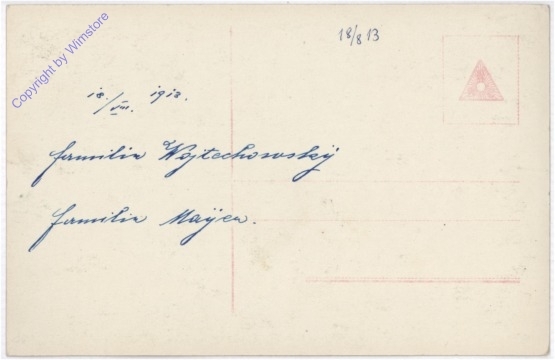 18/8 13
Copyright by Wimstore
18./VIII. 1912.
familie Wojtechowský
familie Mayer.